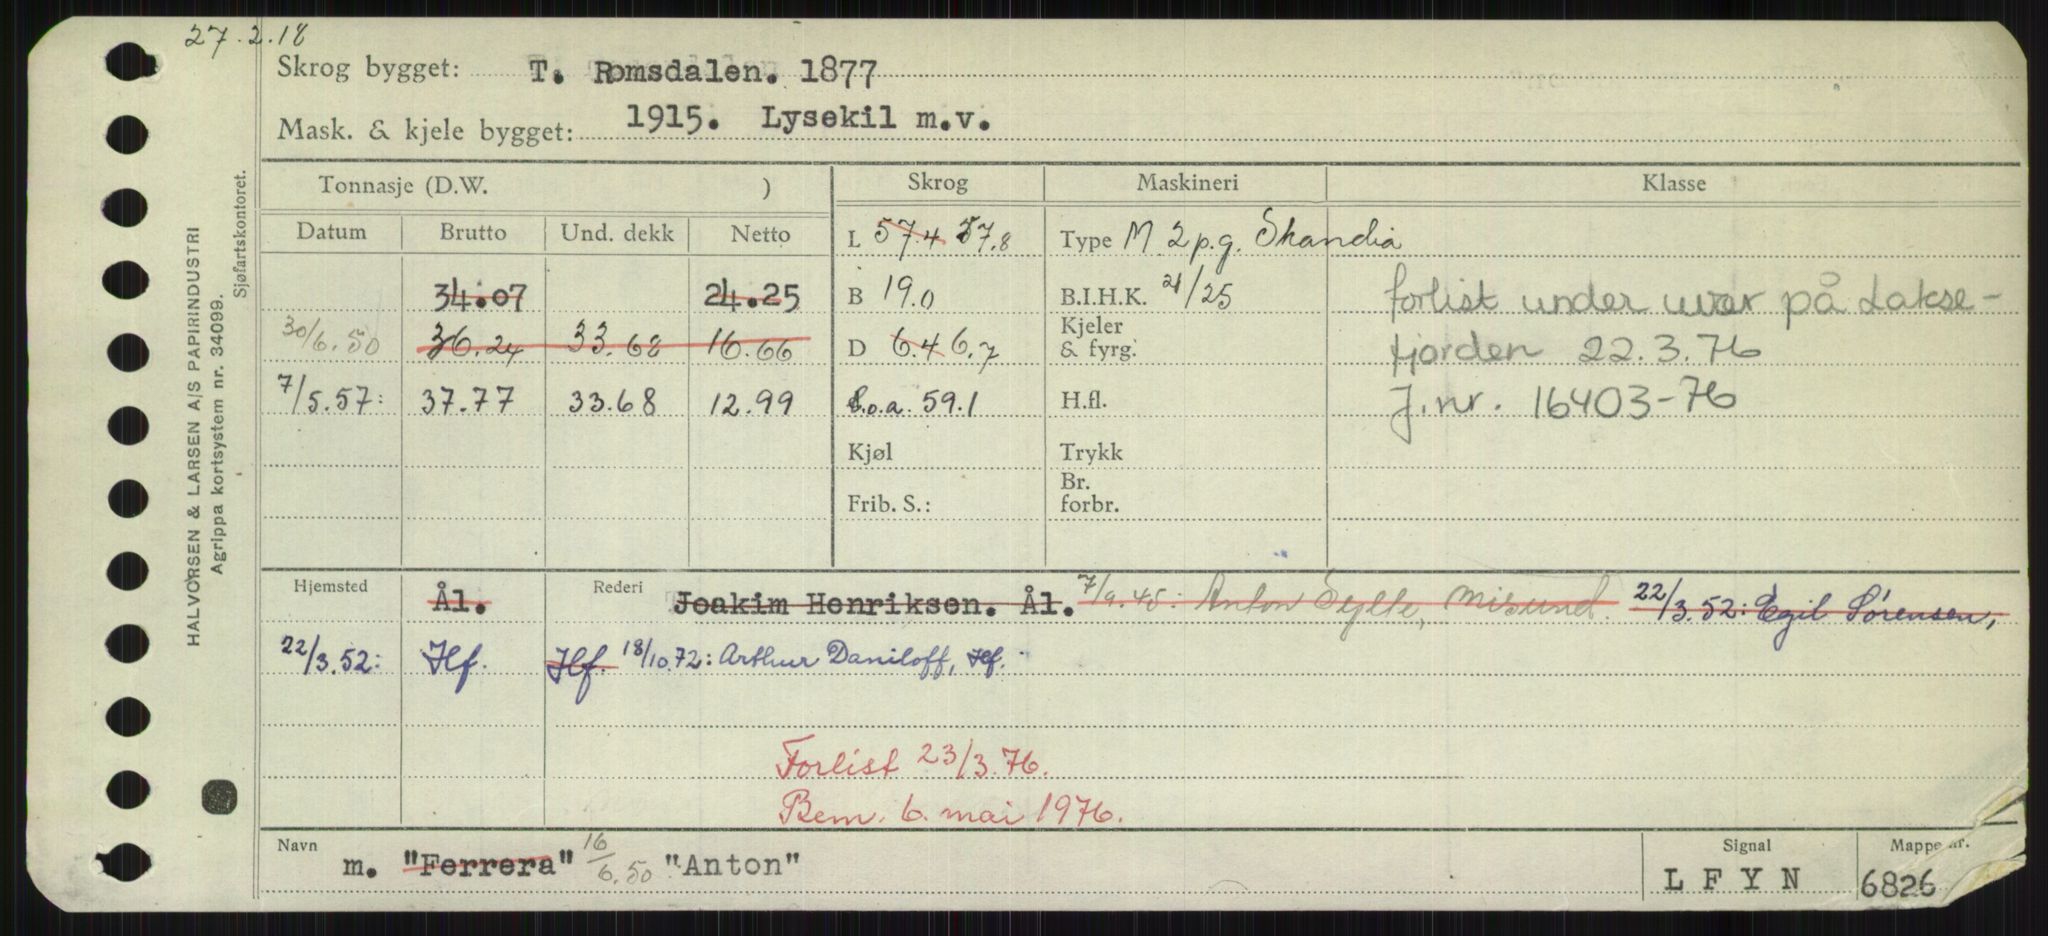 27.2.18
Skrog bygget: T. Romsdalen. 1877
Mask. & kjele bygget: 1915. Lysekil m.v.
HALVORSEN & LARSEN A/S PAPIRINDUSTRI
Agrippa kortsystem nr. 34099.
Sjøfartskontoret.
Tonnasje (D.W. ) Skrog Maskineri Klasse
Datum Brutto Und. dekk Netto L 57.4 57.8 Type M 2 p.g. Skandia
34.07 24.25 B 19.0 B.I.H.K. 21/25 forlist under uvær på Lakse-
30/6.50 36.24 33.68 16.66 D 6.4 6.7 Kjeler & fyrg. fjorden 22.3.76
7/5.57: 37.77 33.68 12.99 L.o.a. 59.1 H.fl. J.nr. 16403-76
Kjøl Trykk
Frib. S.: Br. forbr.
Hjemsted Ål. Rederi Joakim Henriksen. Ål. 7/9.45: Anton Sylte, Misund. 22/3.52: Egil Sørensen,
22/3.52: Hf. Hf. 18/10.72: Arthur Daniloff, Hf.
Forlist 23/3.76.
Bem. 6. mai 1976.
Navn m. "Ferrera" 16/6.50 "Anton" Signal L F Y N Mappe nr. 6826